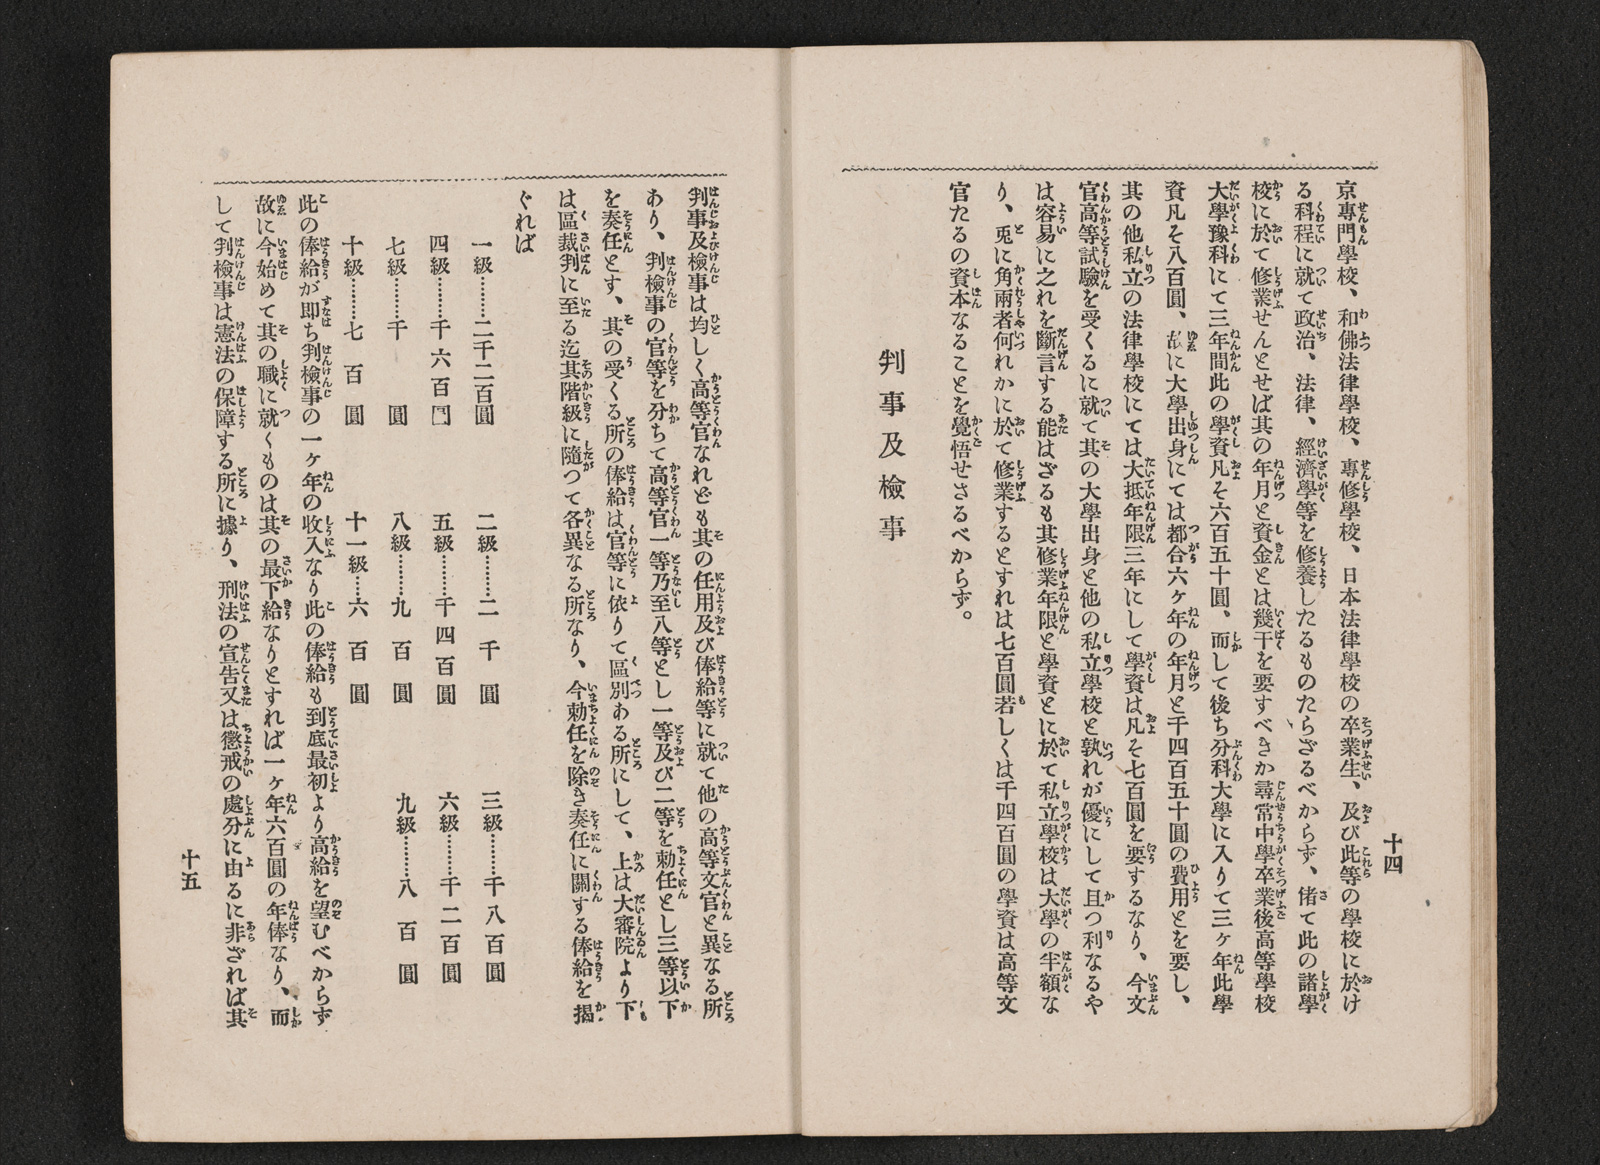 京專門學校、和佛法律學校、專修學校、日本法律學校の卒業生、及び此等の學校に於け
る科程に就て政治、法律、經濟學等を修養したるものたらざるべからず、偖て此の諸學
校に於て修業せんとせば其の年月と資金とは幾干を要すべきか尋常中學卒業後高等學校
大學豫科にて三年間此の學資凡そ六百五十圓、而して後ち分科大學に入りて三ヶ年此學
資凡そ八百圓、故に大學出身にては都合六ヶ年の年月と千四百五十圓の費用とを要し、
其の他私立の法律學校にては大抵年限三年にして學資は凡そ七百圓を要するなり、今文
官高等試驗を受くるに就て其の大學出身と他の私立學校と孰れが優にして且つ利なるや
は容易に之れを斷言する能はざるも其修業年限と學資とに於て私立學校は大學の半額な
り、兎に角兩者何れかに於て修業するとすれは七百圓若しくは千四百圓の學資は高等文
官たるの資本なることを覺悟せさるべからず。
判事及檢事
十四
判事及檢事は均しく高等官なれども其の任用及び俸給等に就て他の高等文官と異なる所
あり、判檢事の官等を分ちて高等官一等乃至八等とし一等及び二等を勅任とし三等以下
を奏任とす、其の受くる所の俸給は官等に依りて區別ある所にして、上は大審院より下
は區裁判に至る迄其階級に隨つて各異なる所なり、今勅任を除き奏任に關する俸給を揭
ぐれば
一級………二千二百圓　二級………二千圓　三級………千八百圓
四級………千六百圓　五級………千四百圓　六級………千二百圓
七級………千圓　八級………九百圓　九級………八百圓
十級………七百圓　十一級……六百圓
此の俸給が即ち判檢事の一ヶ年の收入なり此の俸給も到底最初より高給を望むべからず
故に今始めて其の職に就くものは其の最下給なりとすれば一ヶ年六百圓の年俸なり、而
して判檢事は憲法の保障する所に據り、刑法の宣告又は懲戒の處分に由るに非ざれば其
十五